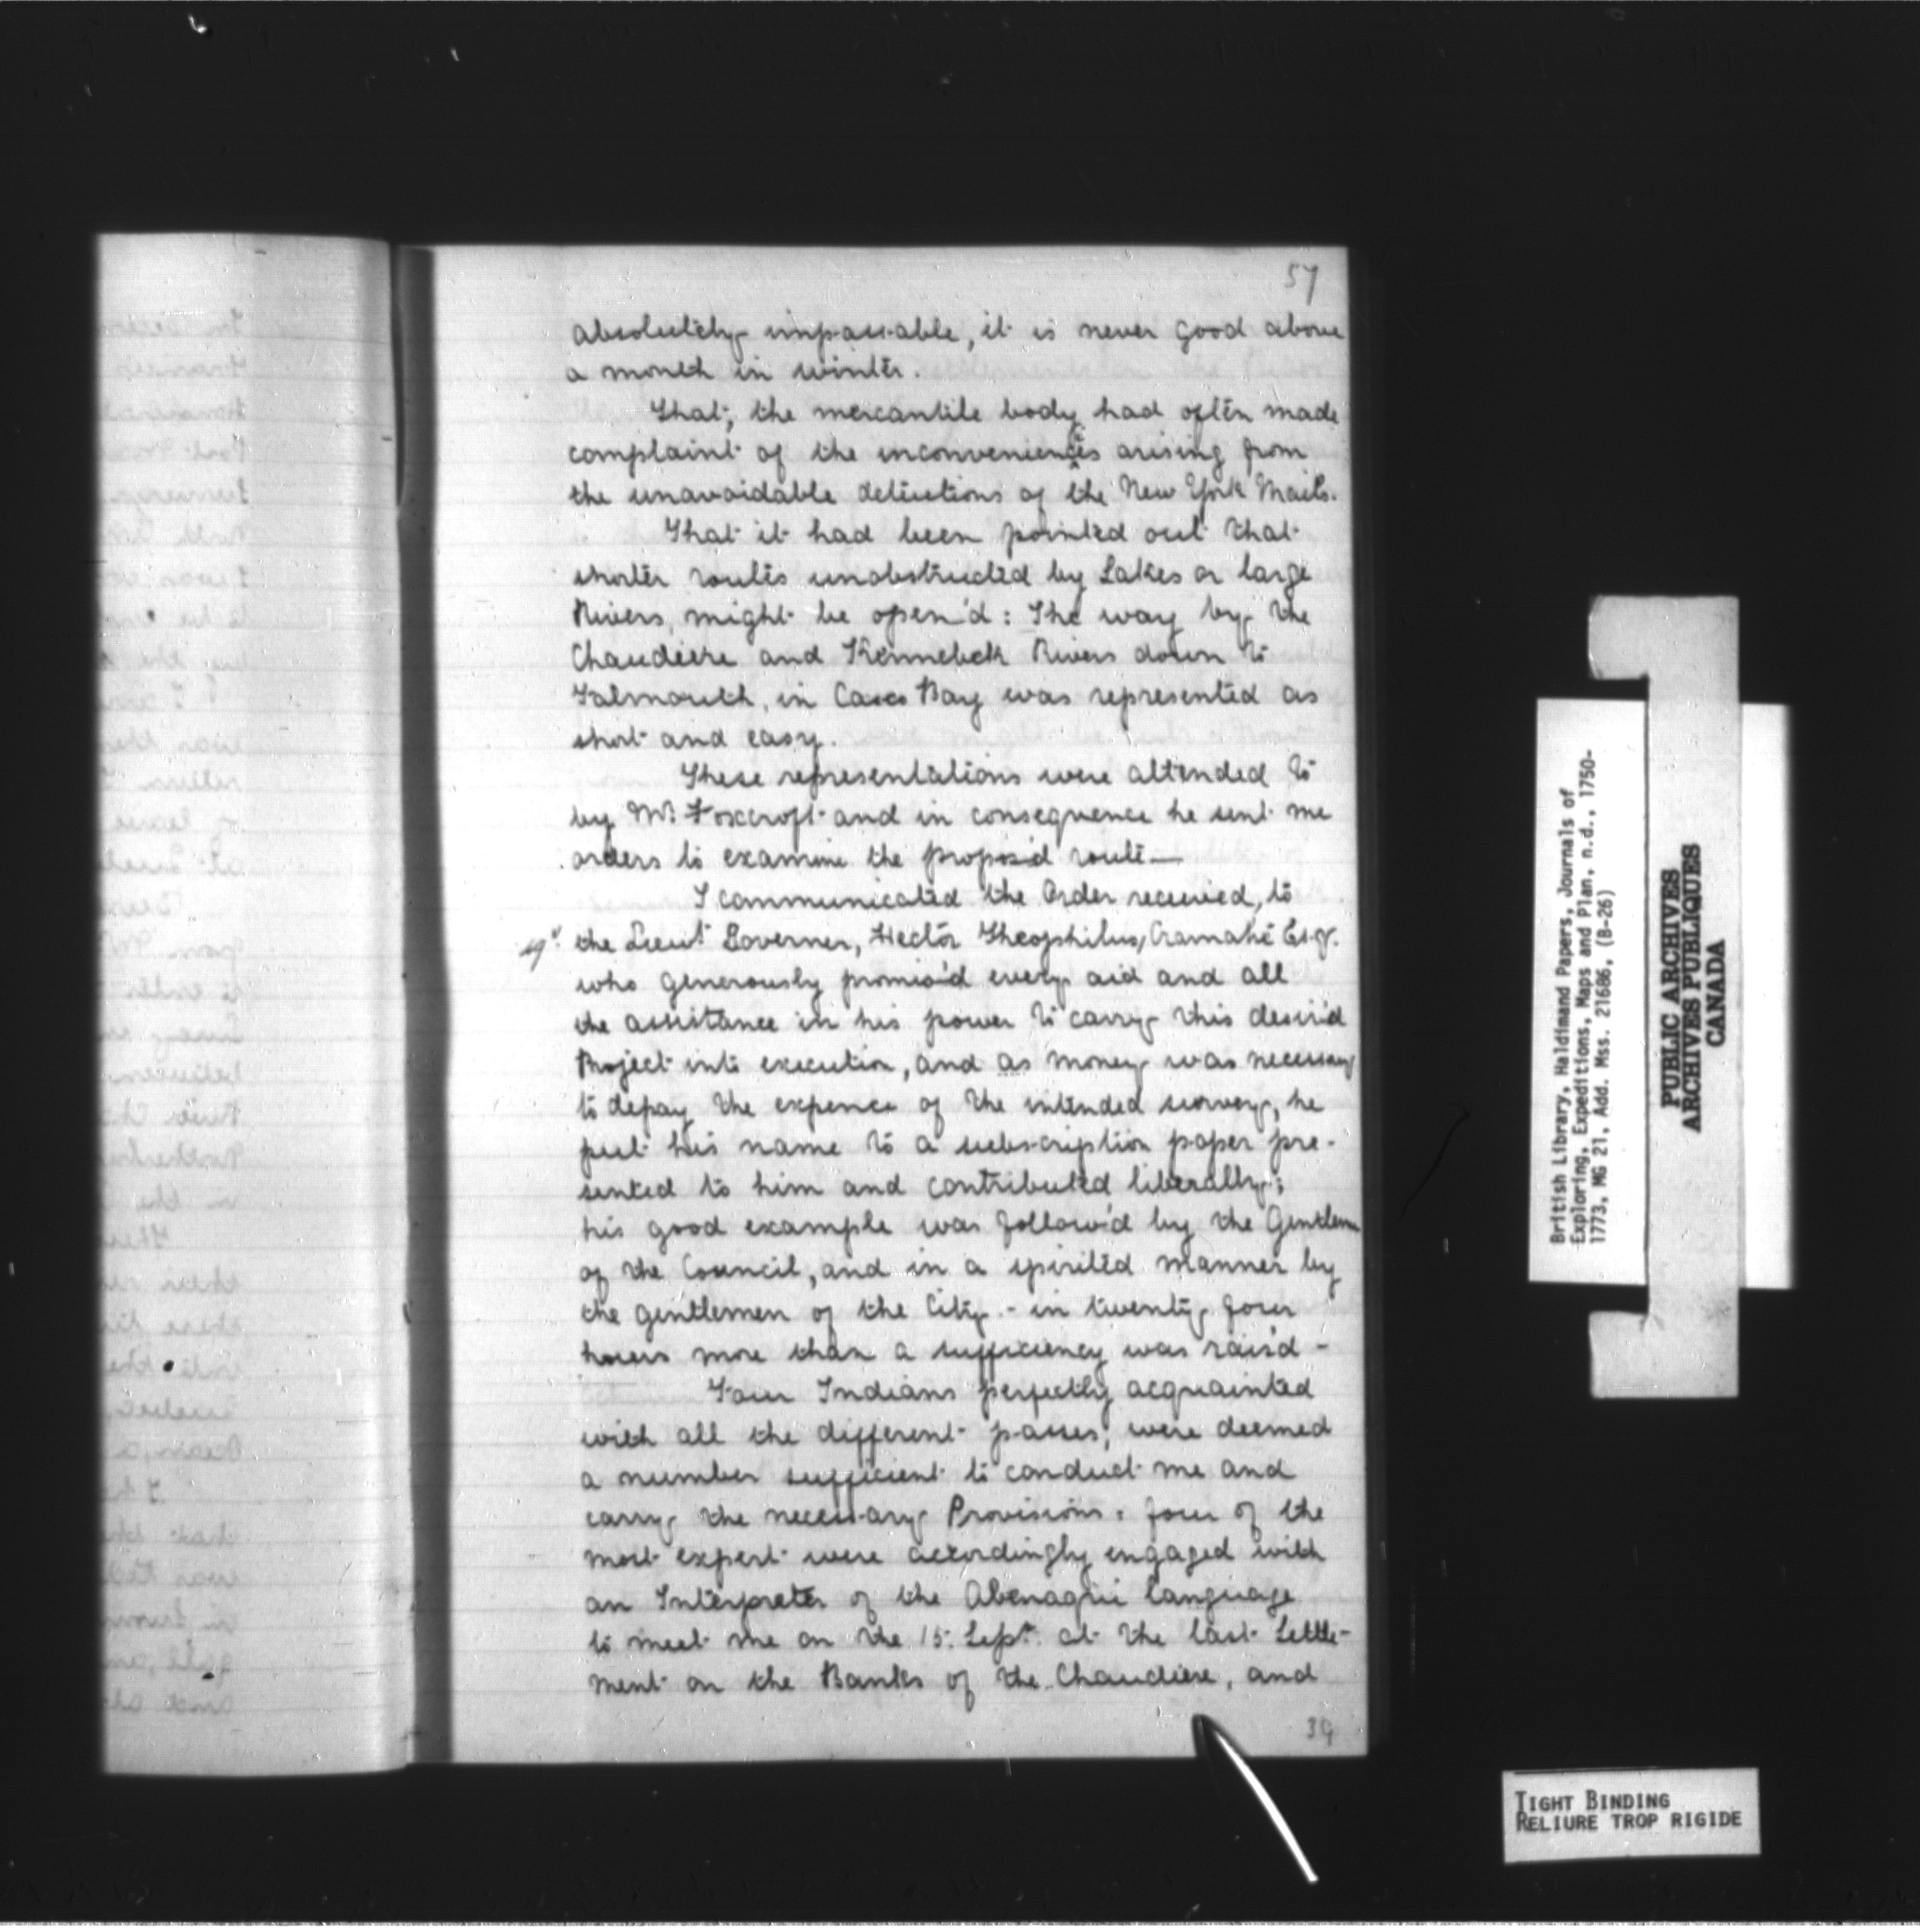 57
absolutely impassable, it is never good above
a month in winter.
That, the mercantile body had often made
complaint of the inconveniences arising from
the unavoidable detentions of the New York Mails.
That it had been pointed out that
shorter routes unobstructed by Lakes or large
Rivers, might be open'd: The way by the
Chaudiere and Kennebek Rivers down to
Falmouth, in Casco Bay was represented as
short and easy.
These representations were attended to
by Mr. Foxcroft and in consequence he sent me
orders to examine the propos'd route—
I communicated the Order received, to
the Lieut Governer, Hector Theophilus, Cramahé Esqr.
who generously promis'd every aid and all
the assistance in his power to carry this desir'd
Project into execution, and as money was necessary
to depay the expence of the intended survey, he
put his name to a subscription paper pre-
sented to him and contributed liberally;
his good example was follow'd by the Gentlem
of the Council, and in a spirited manner by
the gentlemen of the City - in twenty four
hours more than a sufficiency was rais'd -
Four Indians perfectly acquainted
with all the different passes, were deemed
a number sufficient to conduct me and
carry the necessary Provisions. four of the
most expert were accordingly engaged with
an Interpreter of the Abenaqui Language
to meet me on the 15. Sept. at the last Settle-
ment on the Banks of the Chaudiere, and
39
British Library, Haldimand Papers, Journals of
Exploring, Expeditions, Maps and Plan, n.d., 1750-
1773, MG 21, Add. Mss. 21686, (B-26)
PUBLIC ARCHIVES
ARCHIVES PUBLIQUES
CANADA
TIGHT BINDING
RELIURE TROP RIGIDE